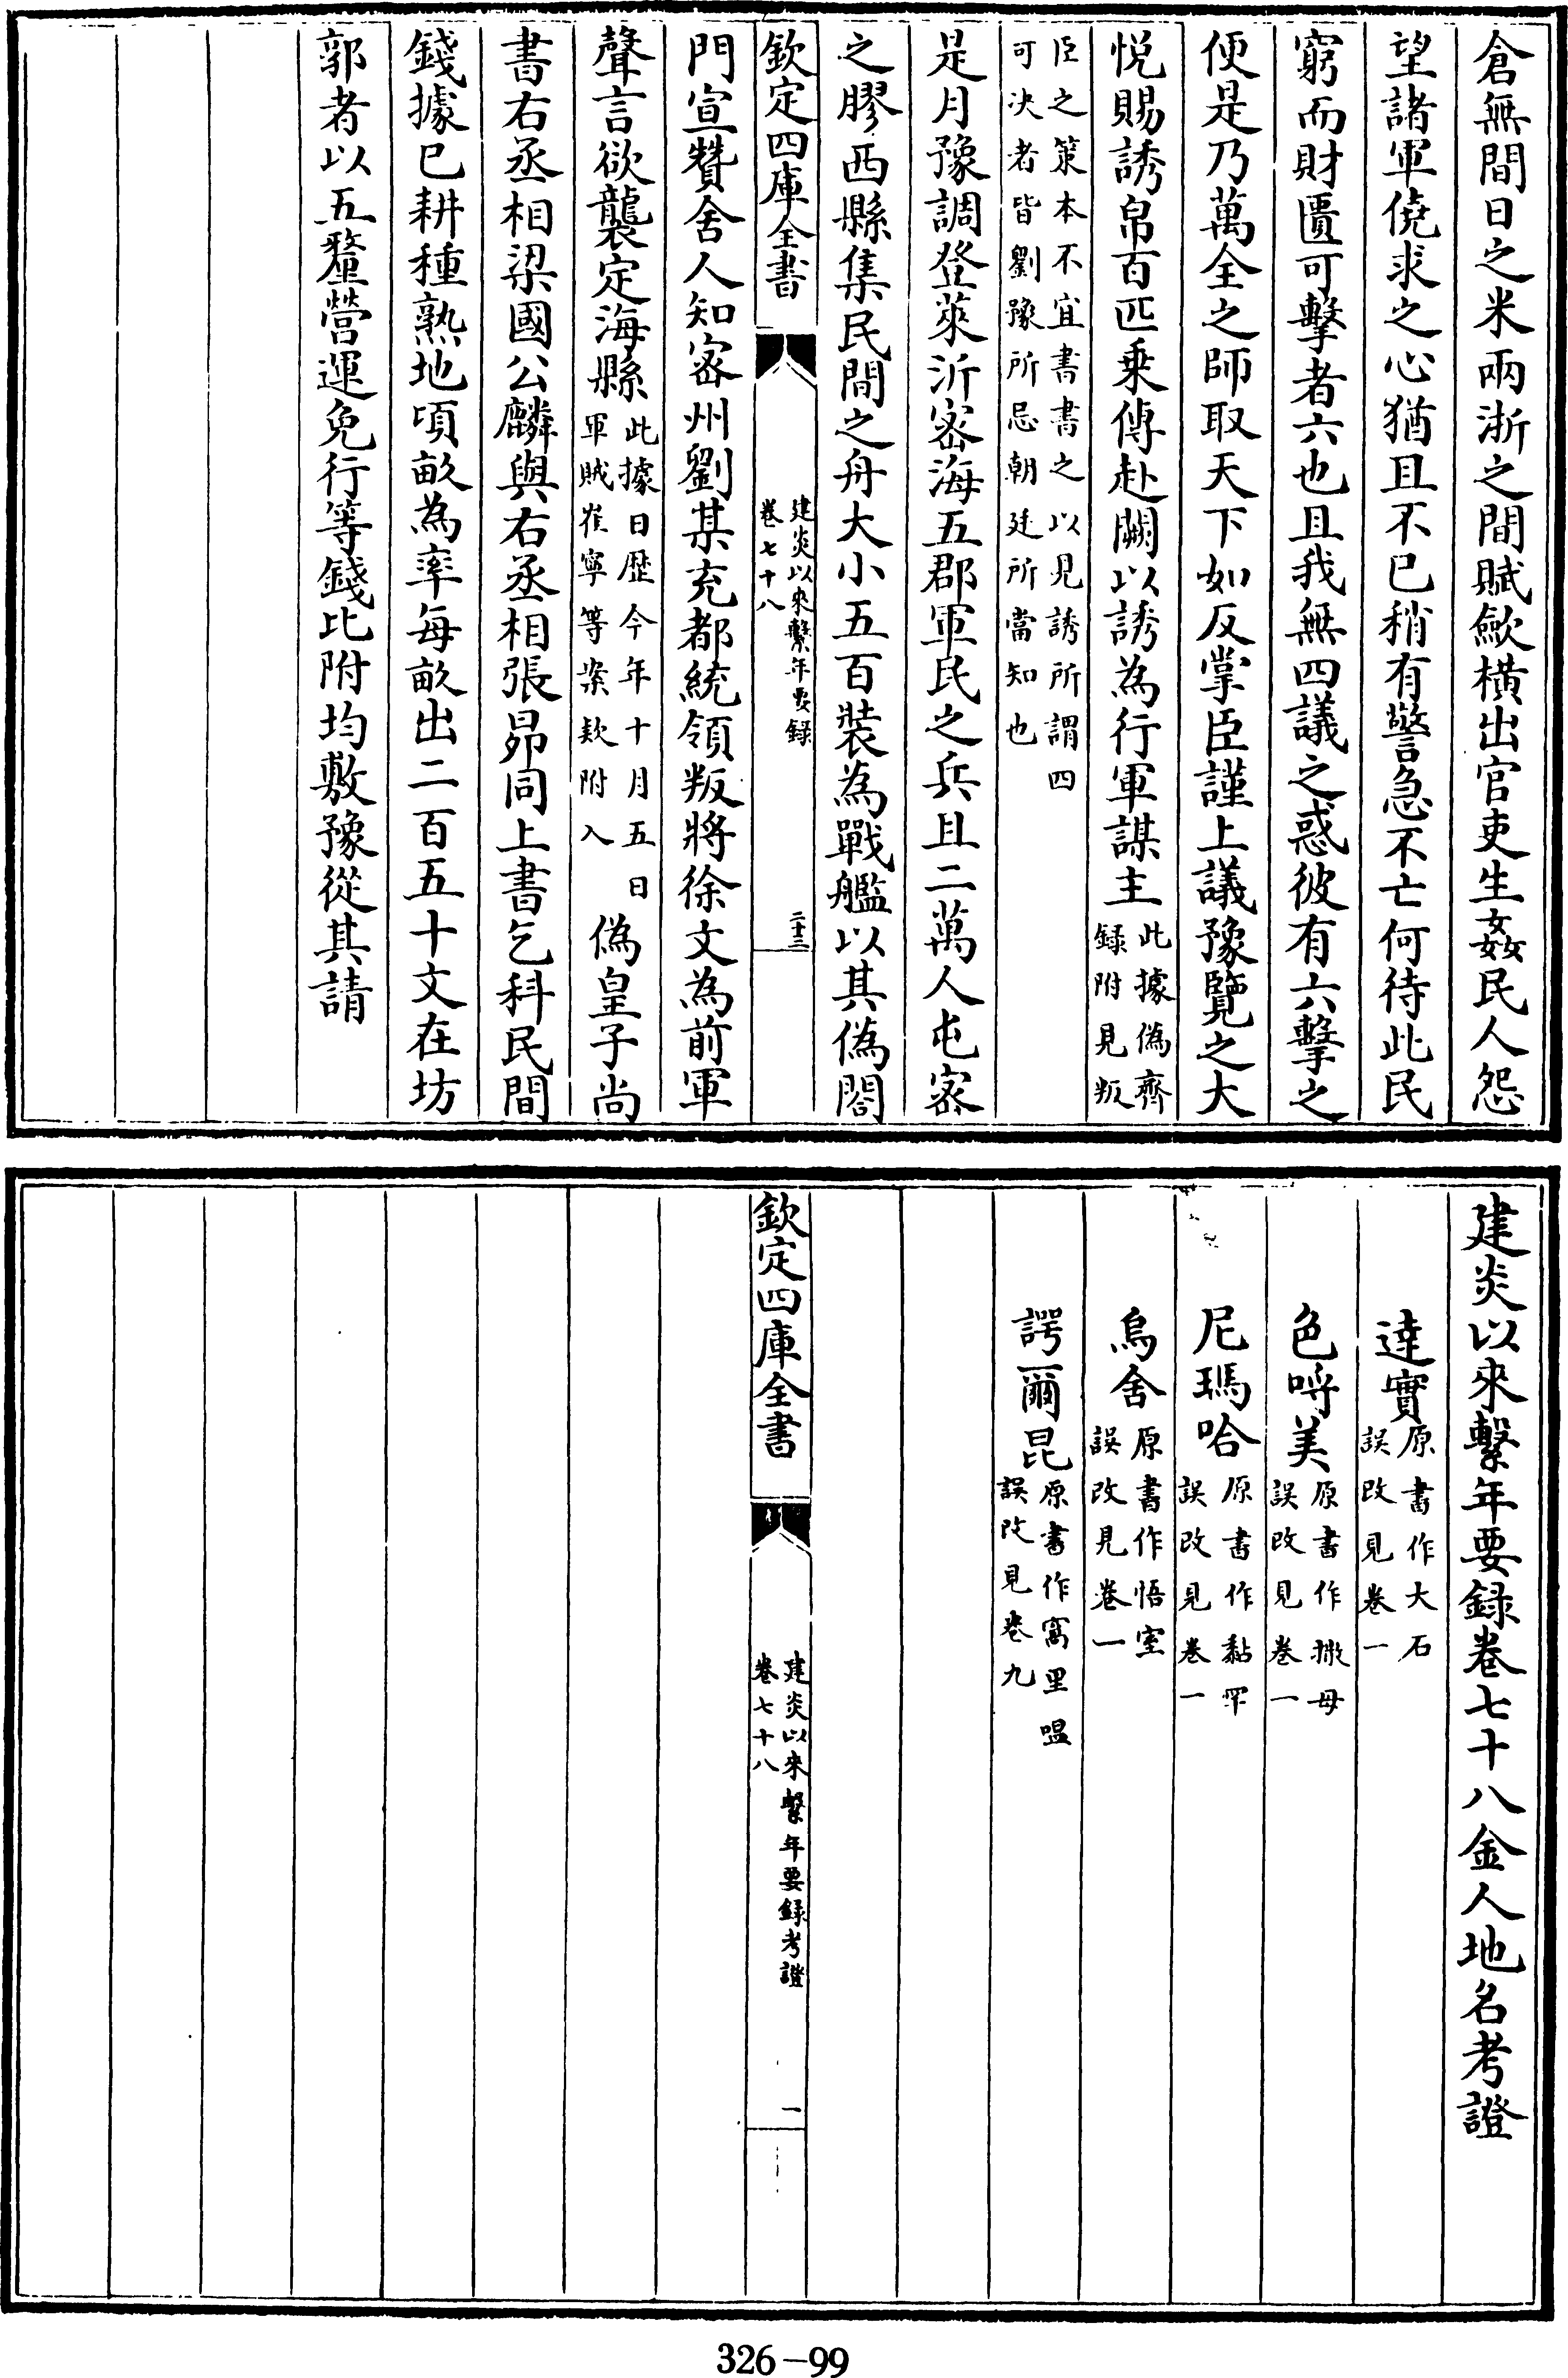 倉無間日之米兩浙之間賦歛橫出官吏生姦民人怨
望諸軍僥求之心猶且不已稍有警急不亡何待此民
窮而財匱可擊者六也且我無四議之惑彼有六擊之
便是乃萬全之師取天下如反掌臣謹上議豫覽之大
悅賜誘帛百匹乗傳赴闕以誘為行軍謀主此據偽齊
録附見叛
臣之策本不宜書書之以見誘所謂四
可决者皆劉豫所忌朝廷所當知也
是月豫調登萊沂密海五郡軍民之兵且二萬人屯密
之膠西縣集民間之舟大小五百裝為戰艦以其偽閤
欽定四庫全書
建炎以來繫年要録
卷七十八
二十三
門宣贊舍人知密州劉某充都統領叛將徐文為前軍
聲言欲襲定海縣此據日歴今年十月五日
軍賊崔寧等案款附入偽皇子尚
書右丞相梁國公麟與右丞相張昴同上書乞科民間
錢據已耕種熟地頃畝為率每畝出二百五十文在坊
郭者以五釐營運免行等錢比附均敷豫從其請
建炎以來繫年要録卷七十八金人地名考證
達實原書作大石
誤改見卷一
色哷美原書作撒母
誤改見卷一
尼瑪哈原書作黏罕
誤改見卷一
烏舍原書作悟室
誤改見卷一
諤爾昆原書作窩里嗢
誤改見卷九
欽定四庫全書
建炎以來繫年要録考證
卷七十八
一
326-99